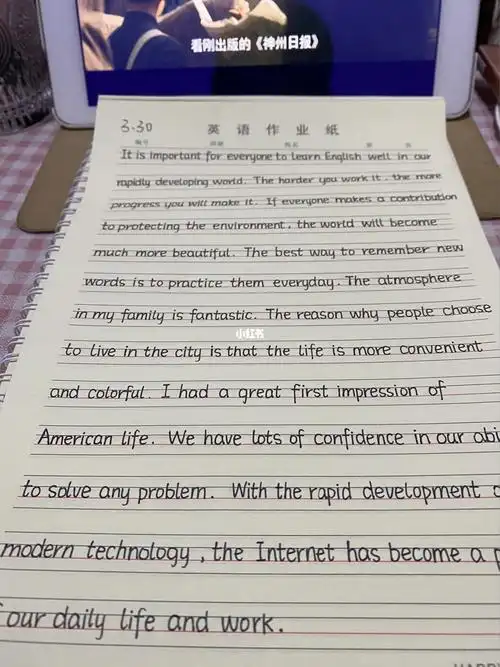 看刚出版的《神州日报》
3.30
英语作业纸
编号 班级 姓名
It is important for everyone to learn English well in our
rapidly developing world. The harder you work it, the more
progress you will make it. If everyone makes a contribution
to protecting the environment, the world will become
much more beautiful. The best way to remember new
words is to practice them everyday. The atmosphere
in my family is fantastic. The reason why people choose
小红书
to live in the city is that the life is more convenient
and colorful. I had a great first impression of
American life. We have lots of confidence in our abi
to solve any problem. With the rapid development
modern technology, the Internet has become a
our daily life and work.